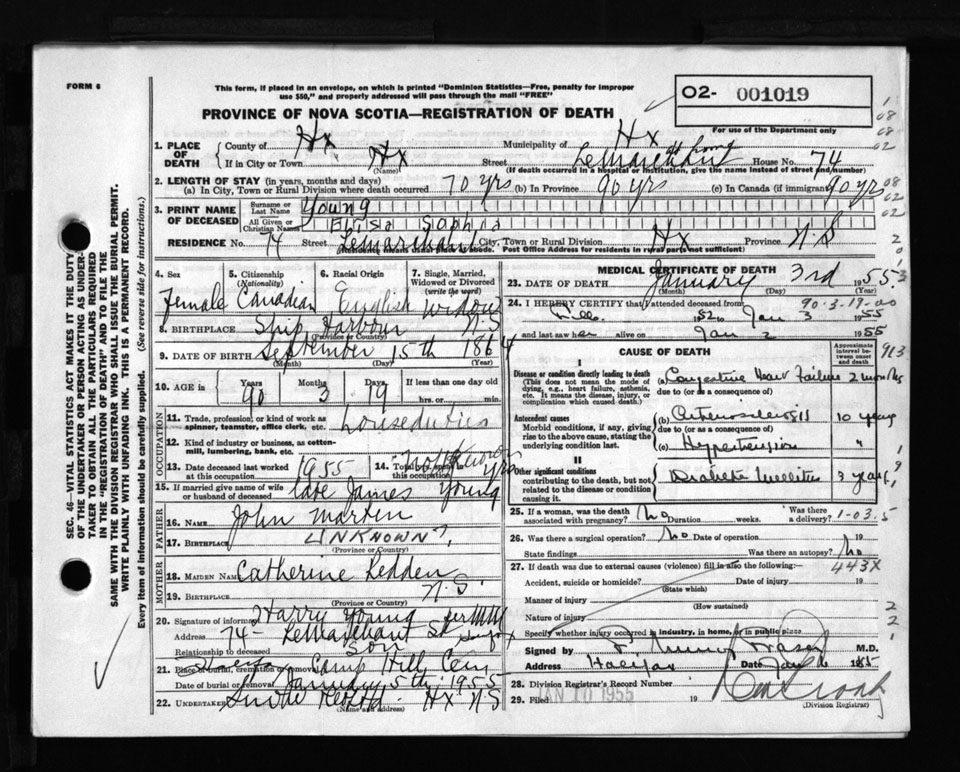 FORM 6
This form, if placed in an envelope, on which is printed "Dominion Statistics—Free, penalty for improper
use $50," and properly addressed will pass through the mail "FREE"
O2- 001019
For use of the Department only
PROVINCE OF NOVA SCOTIA—REGISTRATION OF DEATH
08
08
02
1. PLACE OF DEATH
County of Hx Municipality of Hx
If in City or Town Hx (Name) Street LeMarchant home House No. 74
(If death occurred in a hospital or institution, give the name instead of street and number)
2. LENGTH OF STAY (in years, months and days)
(a) In City, Town or Rural Division where death occurred 70 yrs (b) In Province 90 yrs (c) In Canada (if immigrant) 90 yrs
08
02
02
3. PRINT NAME OF DECEASED
Surname or Last Name Young
All Given or Christian Names Eliisa Sophia
RESIDENCE No. 74 Street LeMarchant City, Town or Rural Division Hx Province N.S
Residence means usual place of abode. Post Office Address for residents in rural parts not sufficient)
4. Sex Female
5. Citizenship (Nationality) Canadian
6. Racial Origin English
7. Single, Married, Widowed or Divorced (write the word) Widow
8. BIRTHPLACE Ship Harbour N.S
(Province or Country)
9. DATE OF BIRTH September 15th 1864
(Month) (Day) (Year)
10. AGE in Years 90 Months 3 Days 19 If less than one day old
hrs. or min.
OCCUPATION
11. Trade, profession or kind of work as
spinner, teamster, office clerk, etc. housedutics
12. Kind of industry or business, as cotton-
mill, lumbering, bank, etc.
13. Date deceased last worked at this occupation 1955
14. Total yrs
15. If married give name of wife or husband of deceased late James Young
FATHER
16. NAME John Marten
17. BIRTHPLACE UNKNOWN
(Province or Country)
MOTHER
18. MAIDEN NAME Catherine Kedden
19. BIRTHPLACE N.S.
(Province or Country)
20. Signature of informant Harry Young per MM
Address 74- LeMarchant St
Relationship to deceased Son
21. Place of burial, cremation or removal Camp Hill Cem
Date of burial or removal January 5th 1955
22. UNDERTAKER Snow Hx N S
(Name and address)
MEDICAL CERTIFICATE OF DEATH
23. DATE OF DEATH January 3rd 1955
(Month) (Day) (Year)
24. I HEREBY CERTIFY that I attended deceased from 90-3-19-00
1952 Jan 3 1955
and last saw her alive on Jan 2 1955
CAUSE OF DEATH
Approximate interval between onset and death
913
I
Disease or condition directly leading to death
(This does not mean the mode of dying, e.g., heart failure, asthenia, etc. It means the disease, injury, or complication which caused death.)
(a) Congestive Heart Failure 2 months
due to (or as a consequence of)
Antecedent causes
Morbid conditions, if any, giving rise to the above cause, stating the underlying condition last.
(b) Arteriosclerosis 10 years
due to (or as a consequence of)
(c) Hypertension "
II
Other significant conditions
contributing to the death, but not related to the disease or condition causing it.
Diabetes Mellitus 3 years
25. If a woman, was the death associated with pregnancy? No Duration weeks. Was there a delivery?
1-03.5
26. Was there surgical operation? No Date of operation 19
State findings Was there an autopsy? No
27. If death was due to external causes (violence) fill in also the following:—
443X
Accident, suicide or homicide? Date of injury 19
(State which)
Manner of injury
(How sustained)
Nature of injury
Specify whether injury occurred in industry, in home, or in public place
Signed by M.D.
Address Halifax Date Jan 6 1955
28. Division Registrar's Record Number
29. Filed JAN 10 1955 19
(Division Registrar)
SEC. 46—VITAL STATISTICS ACT MAKES IT THE DUTY
OF THE UNDERTAKER OR PERSON ACTING AS UNDER-
TAKER TO OBTAIN ALL THE PARTICULARS REQUIRED
IN THE "REGISTRATION OF DEATH" AND TO FILE THE
SAME WITH THE DIVISION REGISTRAR WHO SHALL ISSUE THE BURIAL PERMIT.
WRITE PLAINLY WITH UNFADING INK. THIS IS A PERMANENT RECORD.
Every item of information should be carefully supplied. (See reverse side for instructions.)